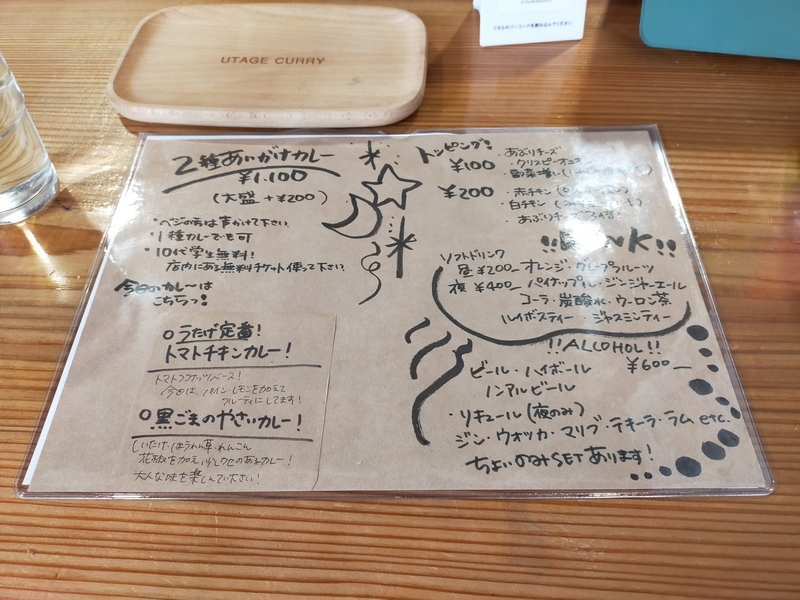 UTAGE CURRY
こちらのバーコードを読み込んでください
2種あいがけカレー
¥1.100
(大盛 +¥200)
・ベジの方は声かけて下さい
・1種カレーでも可
・10代学生無料!
店内にある無料チケット使って下さい
今日のカレーは
こちらっ!
○うたげ定番!
トマトチキンカレー!
トマトココナッツベース!
今日は、パイン・レモンを加えて
フルーティにしてます!
○黒ごまのやさいカレー!
しいたけ・ほうれん草・れんこん
花椒を加え、少しクセのあるカレー!
大人な味を楽しんで下さい!
トッピング!
¥100
・あぶりチーズ
・クリスピーオニオン
・副菜増し
¥200
・赤チキン
・白チキン
・あぶりチーズ
!!DRINK!!
ソフトドリンク
昼¥200-
夜¥400-
オレンジ・グレープフルーツ
パイナップル・ジンジャーエール
コーラ・炭酸水・ウーロン茶
ルイボスティー・ジャスミンティー
!!ALCOHOL!!
¥600-
ビール・ハイボール
ノンアルビール
・リキュール(夜のみ)
ジン・ウォッカ・マリブ・テキーラ・ラム etc.
ちょいのみSETあります!